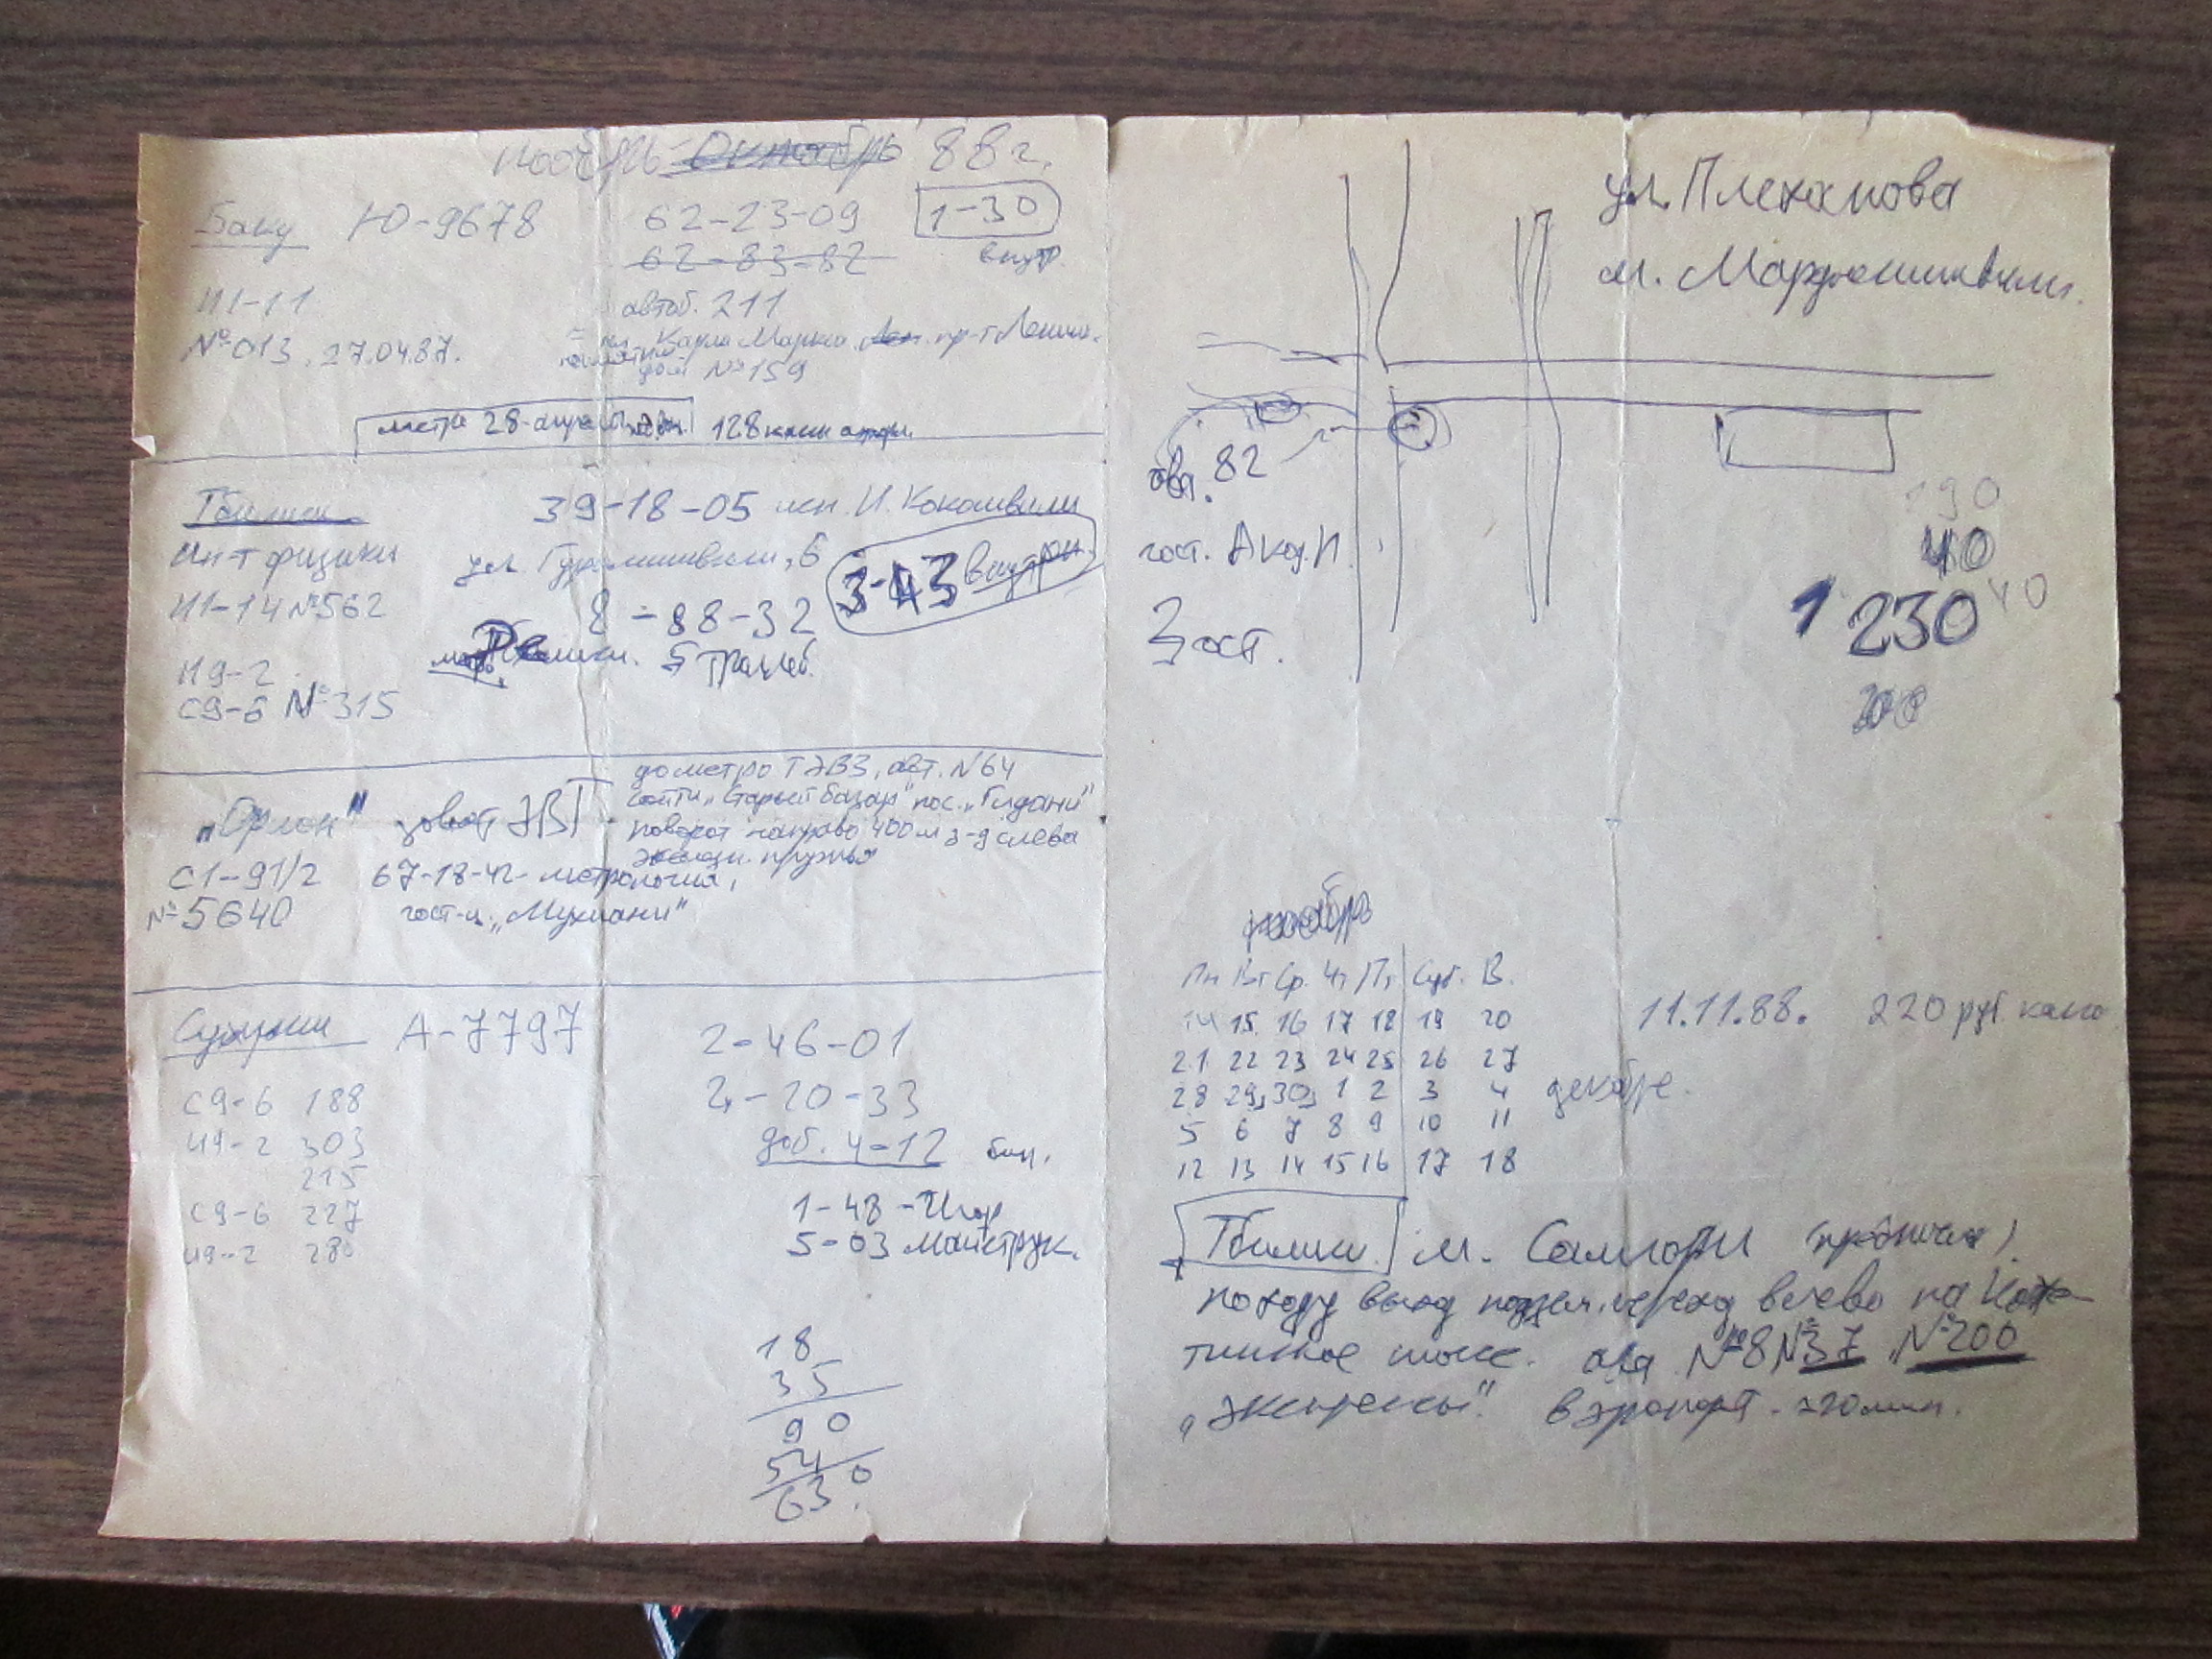 ноябрь Октябрь 88 г.
Баку Ю-9678 62-23-09 1-30
62-83-82 внутр.
И1-11 автоб. 211
№013. 27.04.87. Карла Маркса. пр-т Ленина.
дом №159
метро 28 апреля 128
Тбилиси 39-18-05 И.
Ин-т физики ул. Гурамишвили, 6 3-43 внутрен.
И1-14 №562 8-88-32
5 тролеб.
И9-2
С9-6 №315
до метро ТЭВЗ, авт. №64
"Орлон" завод ЭВТ "Старый базар" пос. "Глдани"
поворот направо 400м з-д слева
С1-91/2 67-18-42- метрология,
№5640 гост-ца "Мухиани"
Сухуми А-7797 2-46-01
С9-6 188 2-20-33
И9-2 303 доб. 4-12
215
С9-6 227 1-48 - Игор
И9-2 280 5-03
18
35
90
54
630
ул. Плеханова
м. Марджанишвили.
авт. 82
гост. Акад. И.
3 гост.
190
40
1 230 40
200
ноябрь
Пн Вт Ср. Чт Пт Суб. В.
14 15 16 17 18 19 20
21 22 23 24 25 26 27
28 29, 30, 1 2 3 4 декабрь.
5 6 7 8 9 10 11
12 13 14 15 16 17 18
11.11.88. 220 руб.
Тбилиси. м. Самгори
по ходу выход подзем. переход влево на Кахе-
тинское шоссе. авт №8 №37, №200
"экспрессы" в эропорт - 20 мин.